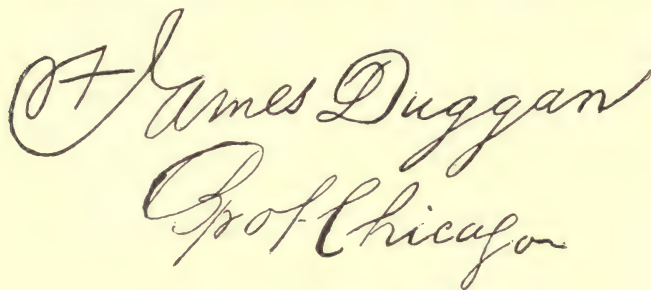 + James Duggan
Bp of Chicago